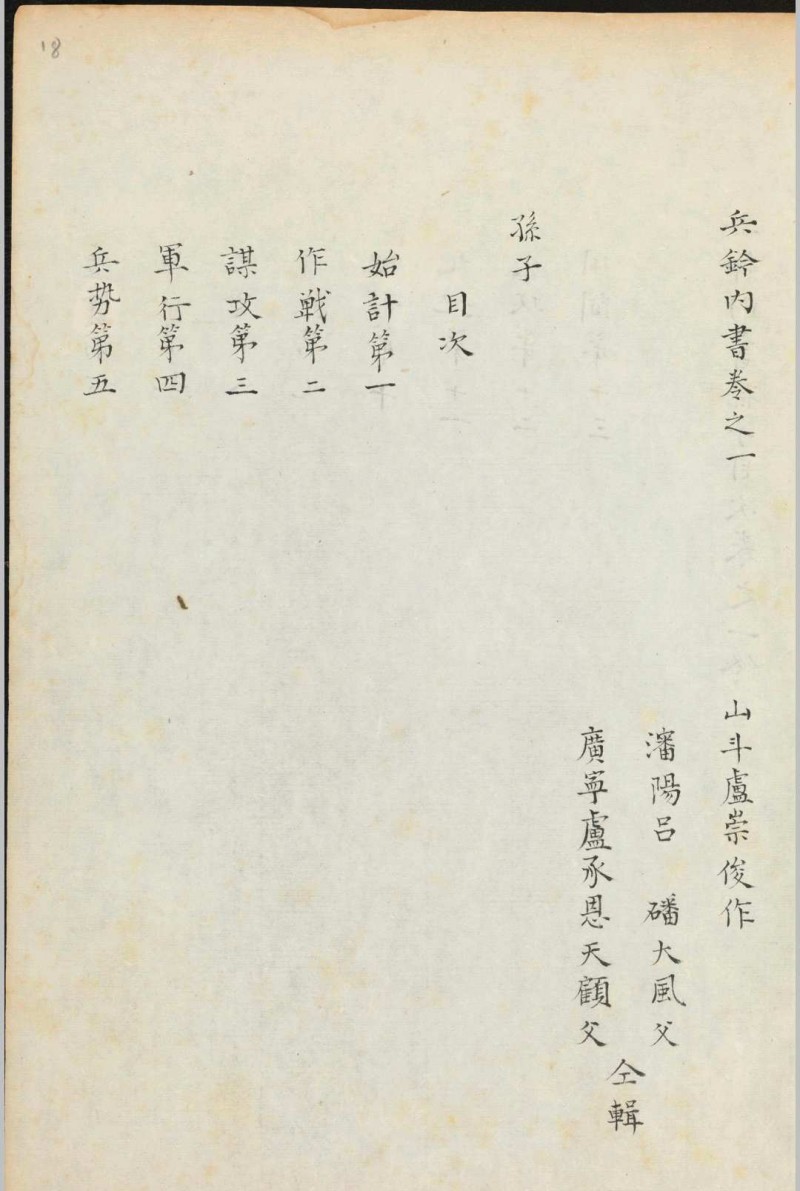 18
兵鈐内書卷之一
山斗盧崇俊作
瀋陽呂　磻大風父
廣寧盧承恩天顧父
仝輯
孫子
目次
始計第一
作戰第二
謀攻第三
軍行第四
兵勢第五